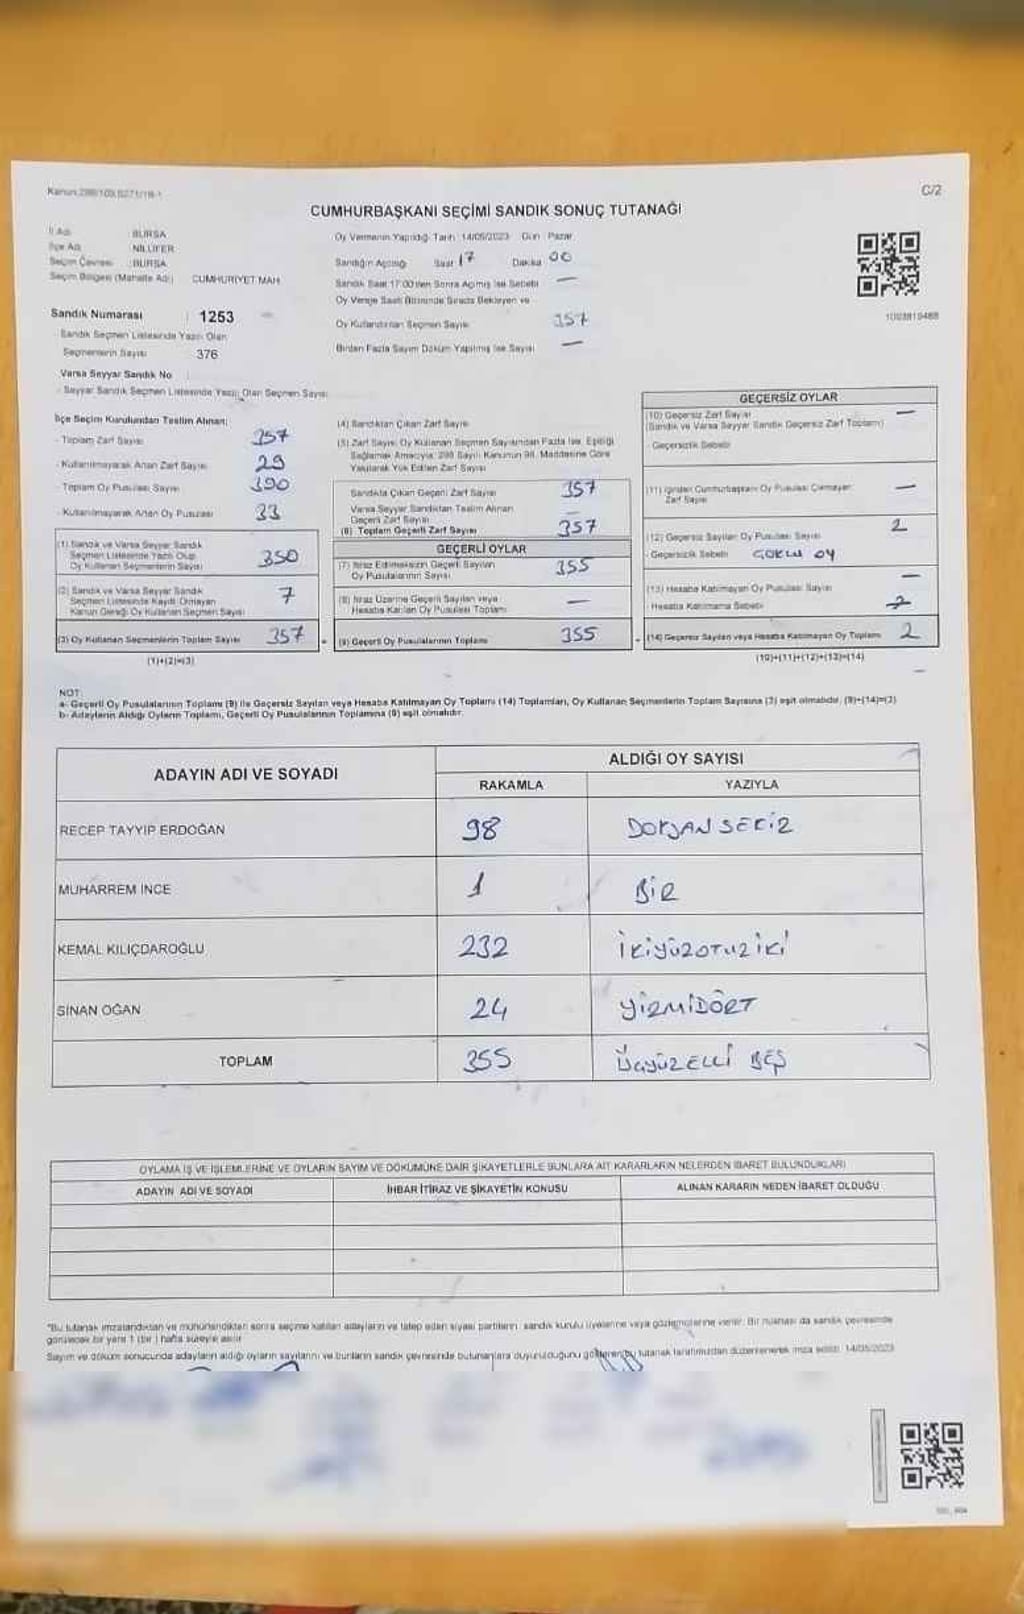 C/2
CUMHURBAŞKANI SEÇİMİ SANDIK SONUÇ TUTANAĞI
İl Adı BURSA
İlçe Adı NİLÜFER
Seçim Çevresi BURSA
Seçim Bölgesi (Mahalle Adı) CUMHURİYET MAH
Sandık Numarası 1253
Sandık Seçmen Listesinde Yazılı Olan
Seçmenlerin Sayısı 376
Varsa Seyyar Sandık No
- Seyyar Sandık Seçmen Listesinde Yazılı Olan Seçmen Sayısı
Oy Vermenin Yapıldığı Tarih 14/05/2023 Gün Pazar
Sandığın Açılığı Saat 17 Dakika 00
Sandık Saat 17:00'den Sonra Açılmış İse Sebebi —
Oy Verme Saati Bitiminde Sırada Bekleyen ve
Oy Kullandırılan Seçmen Sayısı 357
Birden Fazla Sayım Döküm Yapılmış İse Sayısı —
İlçe Seçim Kurulundan Teslim Alınan;
- Toplam Zarf Sayısı 357
- Kullanılmayarak Artan Zarf Sayısı 29
- Toplam Oy Pusulası Sayısı 390
- Kullanılmayarak Artan Oy Pusulası 33
(1) Sandık ve Varsa Seyyar Sandık
Seçmen Listesinde Yazılı Olup
Oy Kullanan Seçmenlerin Sayısı 350
(2) Sandık ve Varsa Seyyar Sandık
Seçmen Listesinde Kayıtlı Olmayan
Kanun Gereği Oy Kullanan Seçmen Sayısı 7
(3) Oy Kullanan Seçmenlerin Toplam Sayısı 357
(1)+(2)=(3)
(4) Sandıktan Çıkan Zarf Sayısı
(5) Zarf Sayısı Oy Kullanan Seçmen Sayısından Fazla İse, Eşitliği
Sağlamak Amacıyla; 298 Sayılı Kanunun 98. Maddesine Göre
Yakılarak Yok Edilen Zarf Sayısı —
Sandıkta Çıkan Geçerli Zarf Sayısı 357
Varsa Seyyar Sandıktan Teslim Alınan
Geçerli Zarf Sayısı —
(6) Toplam Geçerli Zarf Sayısı 357
GEÇERLİ OYLAR
(7) İtiraz Edilmeksizin Geçerli Sayılan
Oy Pusulalarının Sayısı 355
(8) İtiraz Üzerine Geçerli Sayılan veya
Hesaba Katılan Oy Pusulası Toplamı —
(9) Geçerli Oy Pusulalarının Toplamı 355
GEÇERSİZ OYLAR
(10) Geçersiz Zarf Sayısı
(Sandık ve Varsa Seyyar Sandık Geçersiz Zarf Toplamı) —
- Geçersizlik Sebebi
(11) İçinden Cumhurbaşkanı Oy Pusulası Çıkmayan
Zarf Sayısı —
(12) Geçersiz Sayılan Oy Pusulası Sayısı 2
- Geçersizlik Sebebi ÇOKLU OY
(13) Hesaba Katılmayan Oy Pusulası Sayısı —
Hesaba Katılmama Sebebi
(14) Geçersiz Sayılan veya Hesaba Katılmayan Oy Toplamı 2
(10)+(11)+(12)+(13)=(14)
NOT:
a- Geçerli Oy Pusulalarının Toplamı (9) ile Geçersiz Sayılan veya Hesaba Katılmayan Oy Toplamı (14) Toplamları, Oy Kullanan Seçmenlerin Toplam Sayısına (3) eşit olmalıdır. (9)+(14)=(3)
b- Adayların Aldığı Oyların Toplamı, Geçerli Oy Pusulalarının Toplamına (9) eşit olmalıdır.
ADAYIN ADI VE SOYADI ALDIĞI OY SAYISI
RAKAMLA YAZIYLA
RECEP TAYYİP ERDOĞAN 98 DOKSAN SEKİZ
MUHARREM İNCE 1 BİR
KEMAL KILIÇDAROĞLU 232 İKİYÜZOTUZ İKİ
SİNAN OĞAN 24 YİRMİDÖRT
TOPLAM 355 ÜÇYÜZELLİ BEŞ
OYLAMA İŞ VE İŞLEMLERİNE VE OYLARIN SAYIM VE DÖKÜMÜNE DAİR ŞİKAYETLERLE BUNLARA AİT KARARLARIN NELERDEN İBARET BULUNDUKLARI
ADAYIN ADI VE SOYADI İHBAR İTİRAZ VE ŞİKAYETİN KONUSU ALINAN KARARIN NEDEN İBARET OLDUĞU
*Bu tutanak imzalandıktan ve mühürlendikten sonra seçime katılan adayların ve talep eden siyasi partilerin sandık kurulu üyelerine veya gözlemcilerine verilir. Bir nüshası da sandık çevresinde
görülecek bir yere 1 (bir) hafta süreyle asılır
Sayım ve döküm sonucunda adayların aldığı oyların sayılarını ve bunların sandık çevresinde bulunanlara duyurulduğunu gösteren bu tutanak tarafımızdan düzenlenerek imza edildi. 14/05/2023